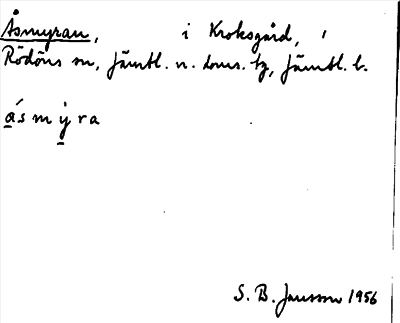 Åsmyran, i Kroksgård,
Rödöns sn, Jämtl. n. doms. tg, Jämtl. l.
a̲´s m ẏ̲ r a
S. B. Jansson 1956